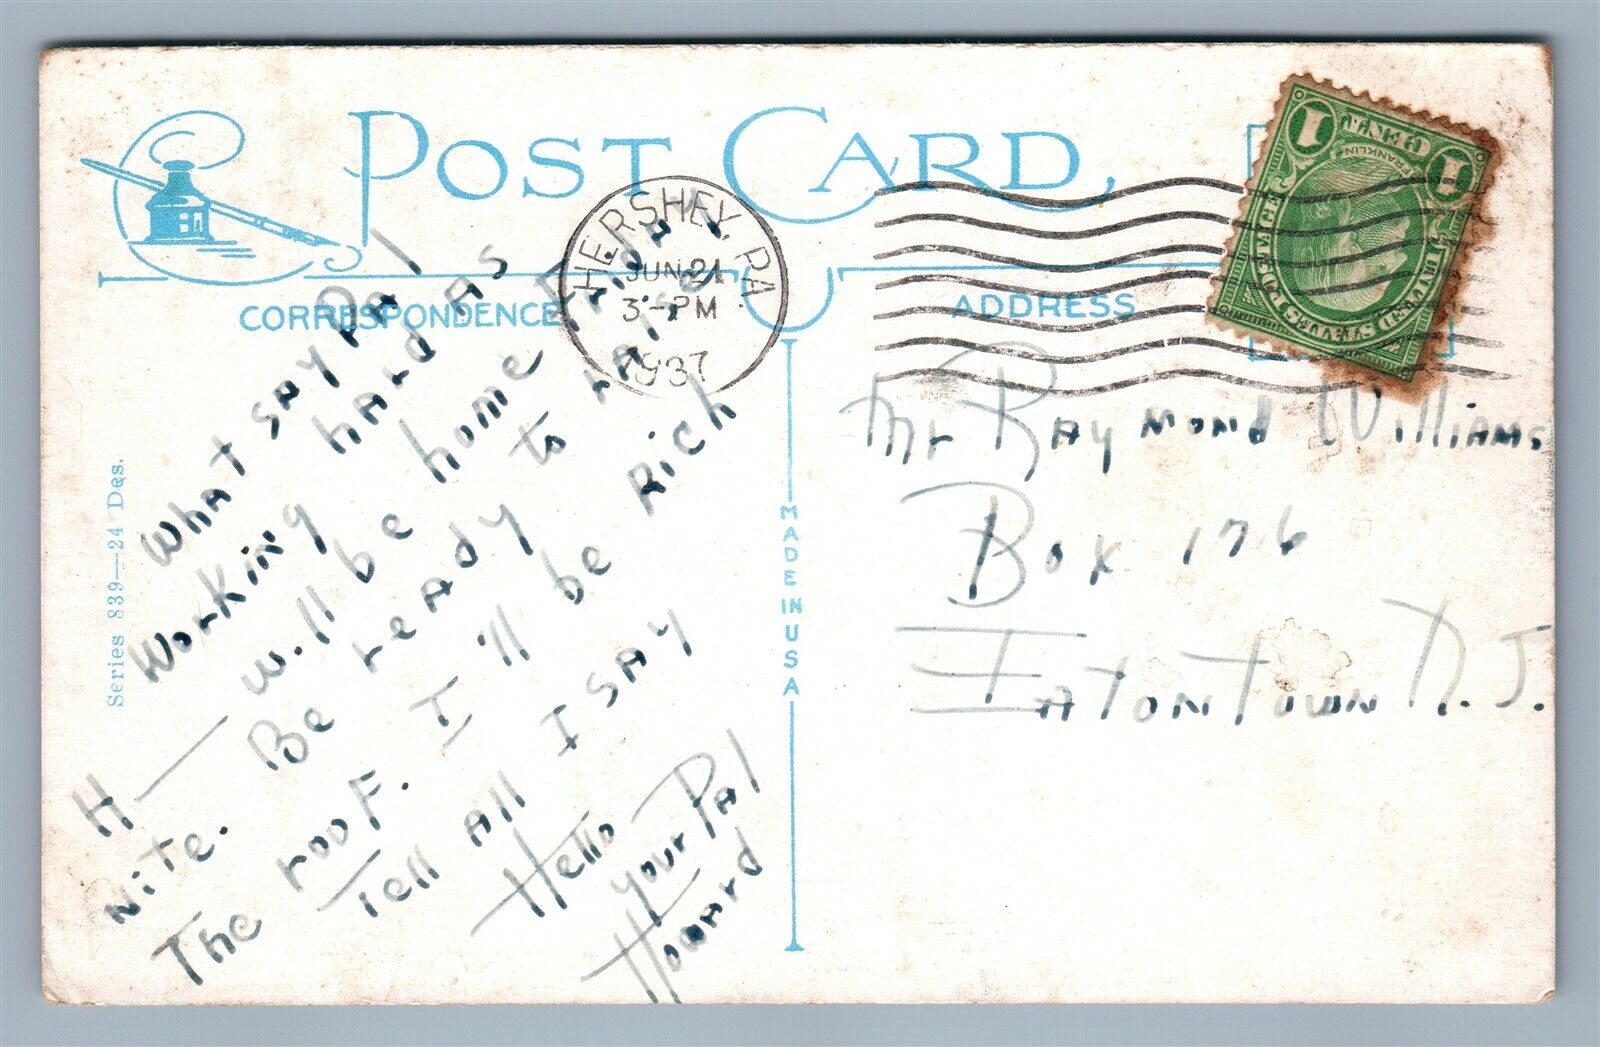 POST CARD
CORRESPONDENCE
ADDRESS
HERSHEY, PA.
JUN 21
3-PM
1937
1 CENT 1
FRANKLIN
UNITED STATES POSTAGE
What say Pal
Working hard as
H— will be home Friday
Nite. Be ready to raise
The roof. I'll be Rich
Tell All I say
Hello
your Pal
Howard
Mr Raymond Williams
Box 176
Eatontown N.J.
MADE IN USA
Series 839—24 Des.